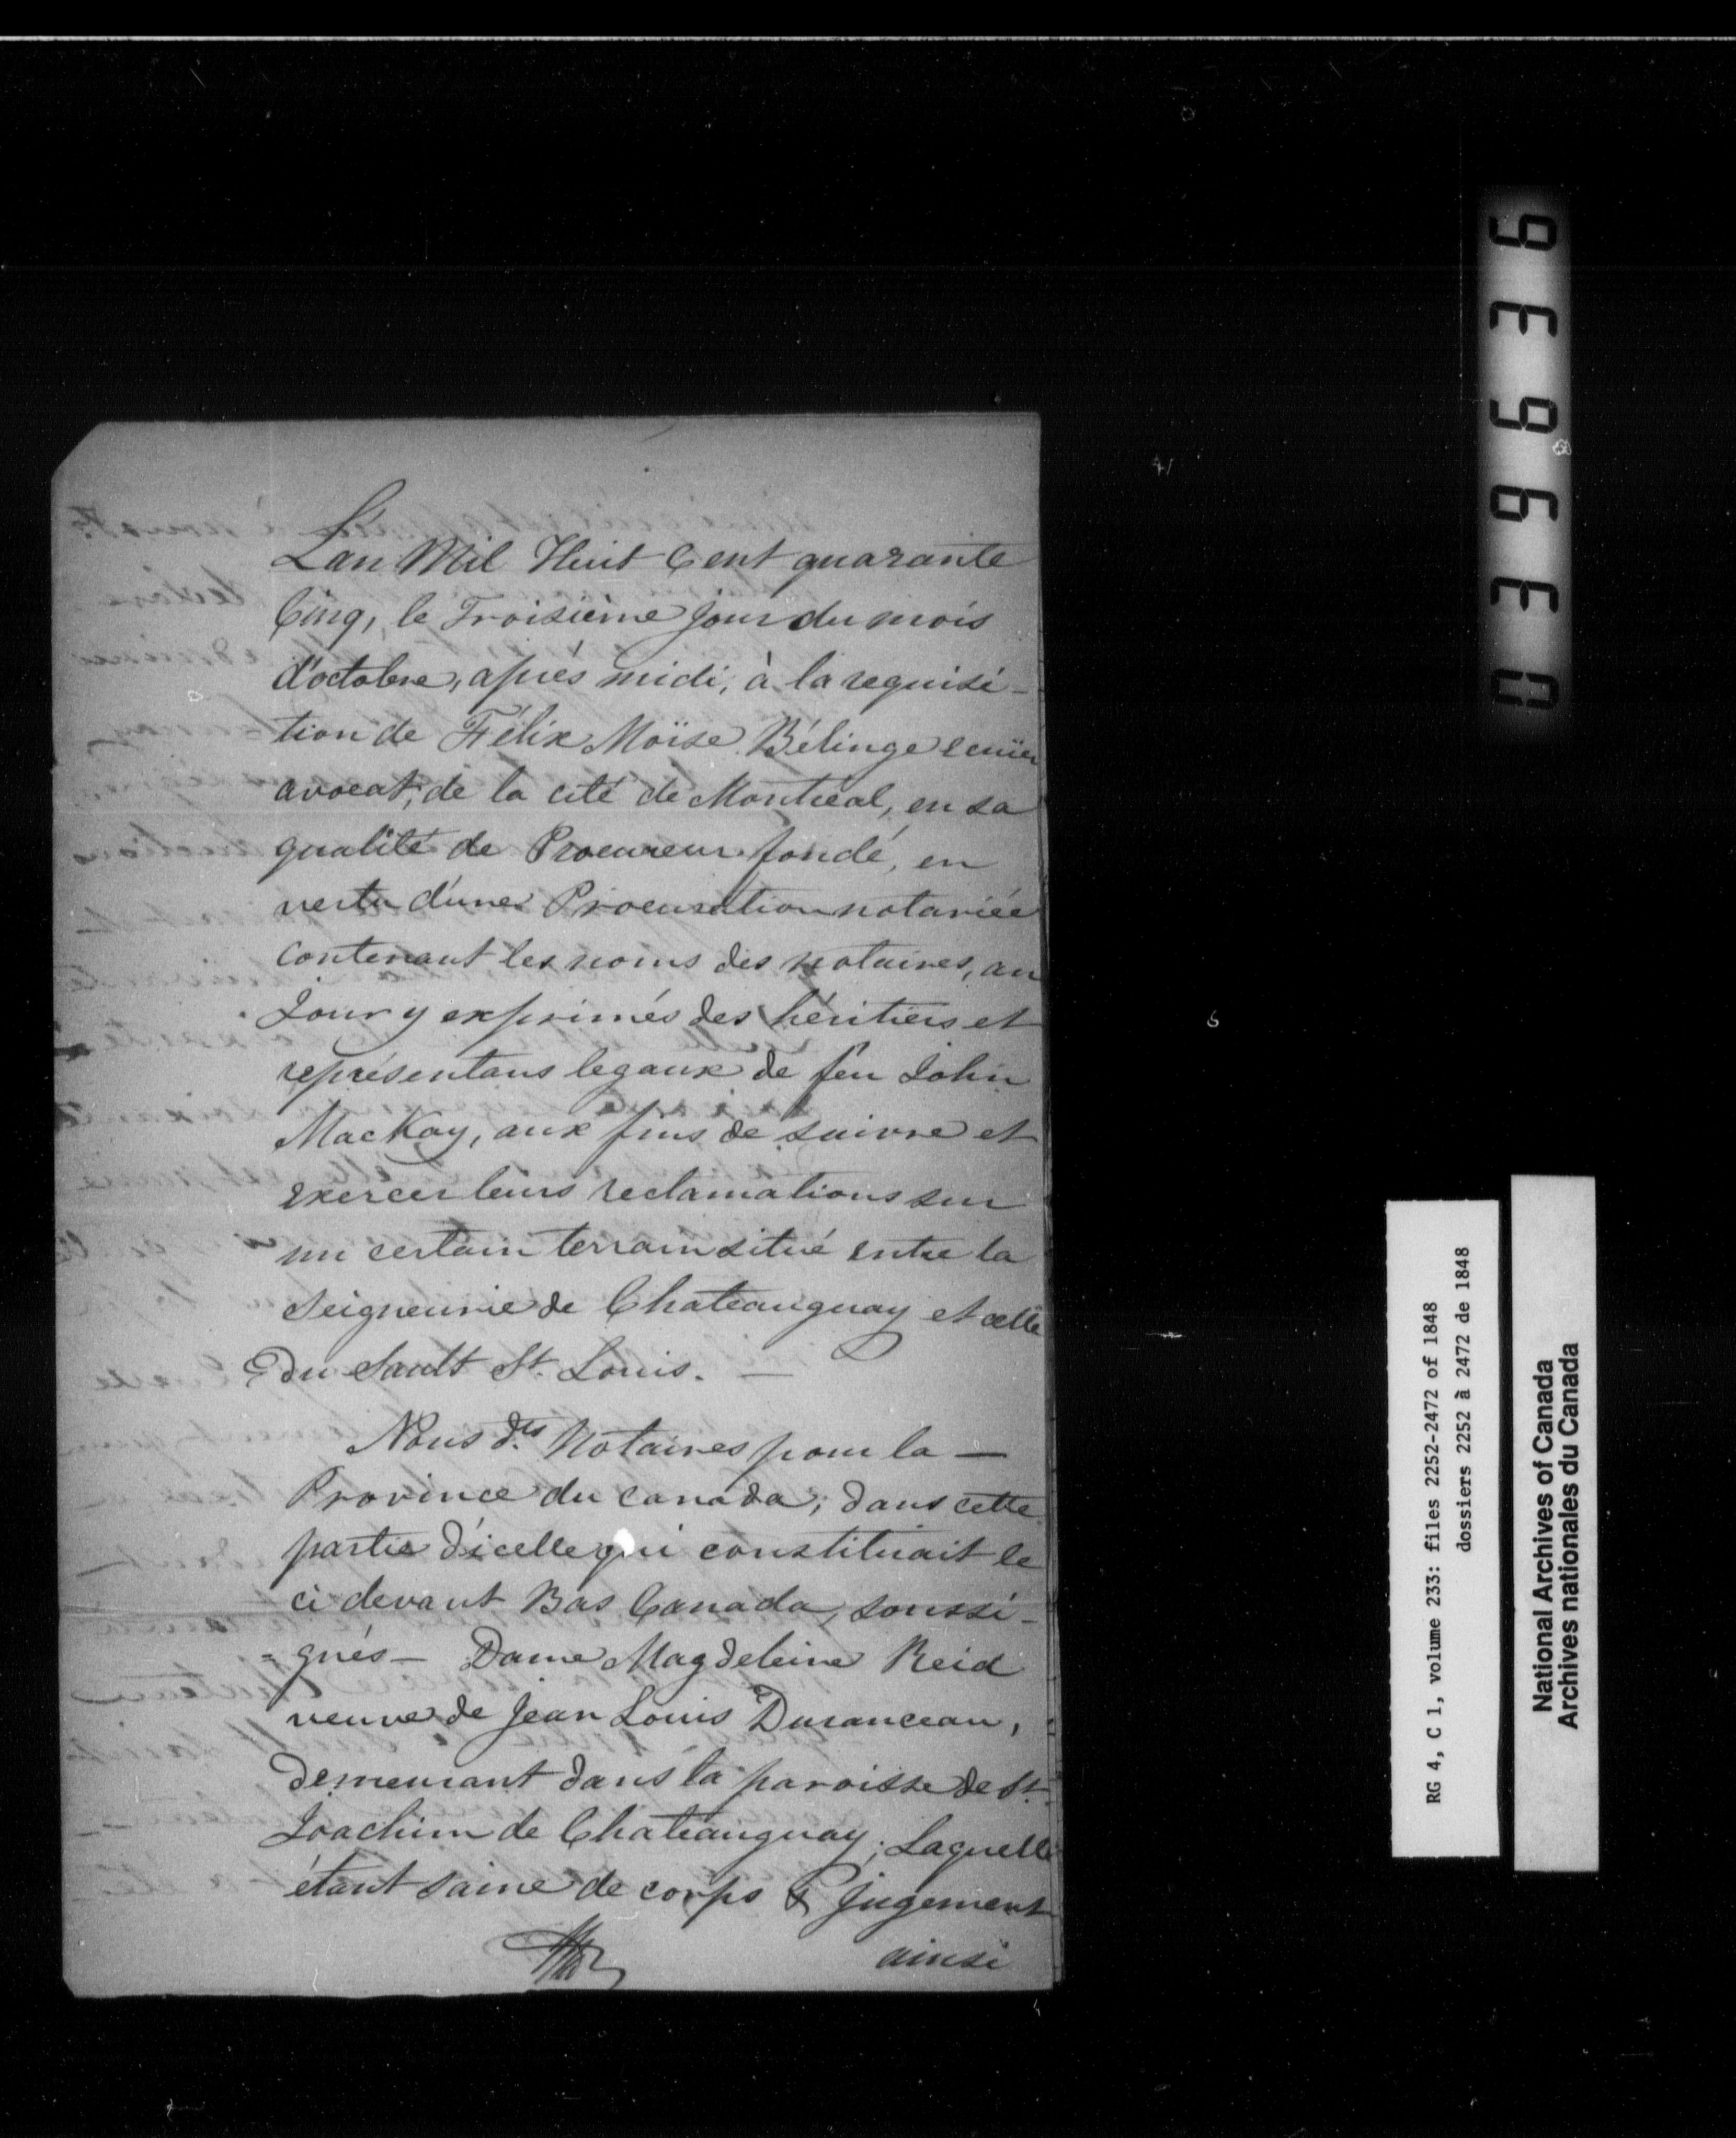 L'an Mil Huit Cent quarante
Cinq, le Troisième jour du mois
d'octobre, après midi, à la requisi-
tion de Félix Moïse Bélinge ecuier
avocat, de la cité de Montréal, en sa
qualité de Procureur fondé, en
vertu d'une Procuration notariée
contenant les noms des notaires, au
Jour y exprimés des héritiers et
représentans legaux de feu John
MacKay, aux fins de suivre et
exercer leurs reclamations sur
un certain terrain situé entre la
Seigneurie de Chateauguay et celle
du Sault St. Louis. —
Nous dts Notaires pour la —
Province du Canada, dans cette
partie d'icelle qui constituait le
ci devant Bas Canada, soussi-
=gnés — Dame Magdeleine Reid
veuve de Jean Louis Duranceau,
demeurant dans la paroisse de St.
Joachim de Chateauguay; Laquelle
étant saine de corps & jugement
ainsi
039636
RG 4, C 1, volume 233: files 2252-2472 of 1848
dossiers 2252 à 2472 de 1848
National Archives of Canada
Archives nationales du Canada